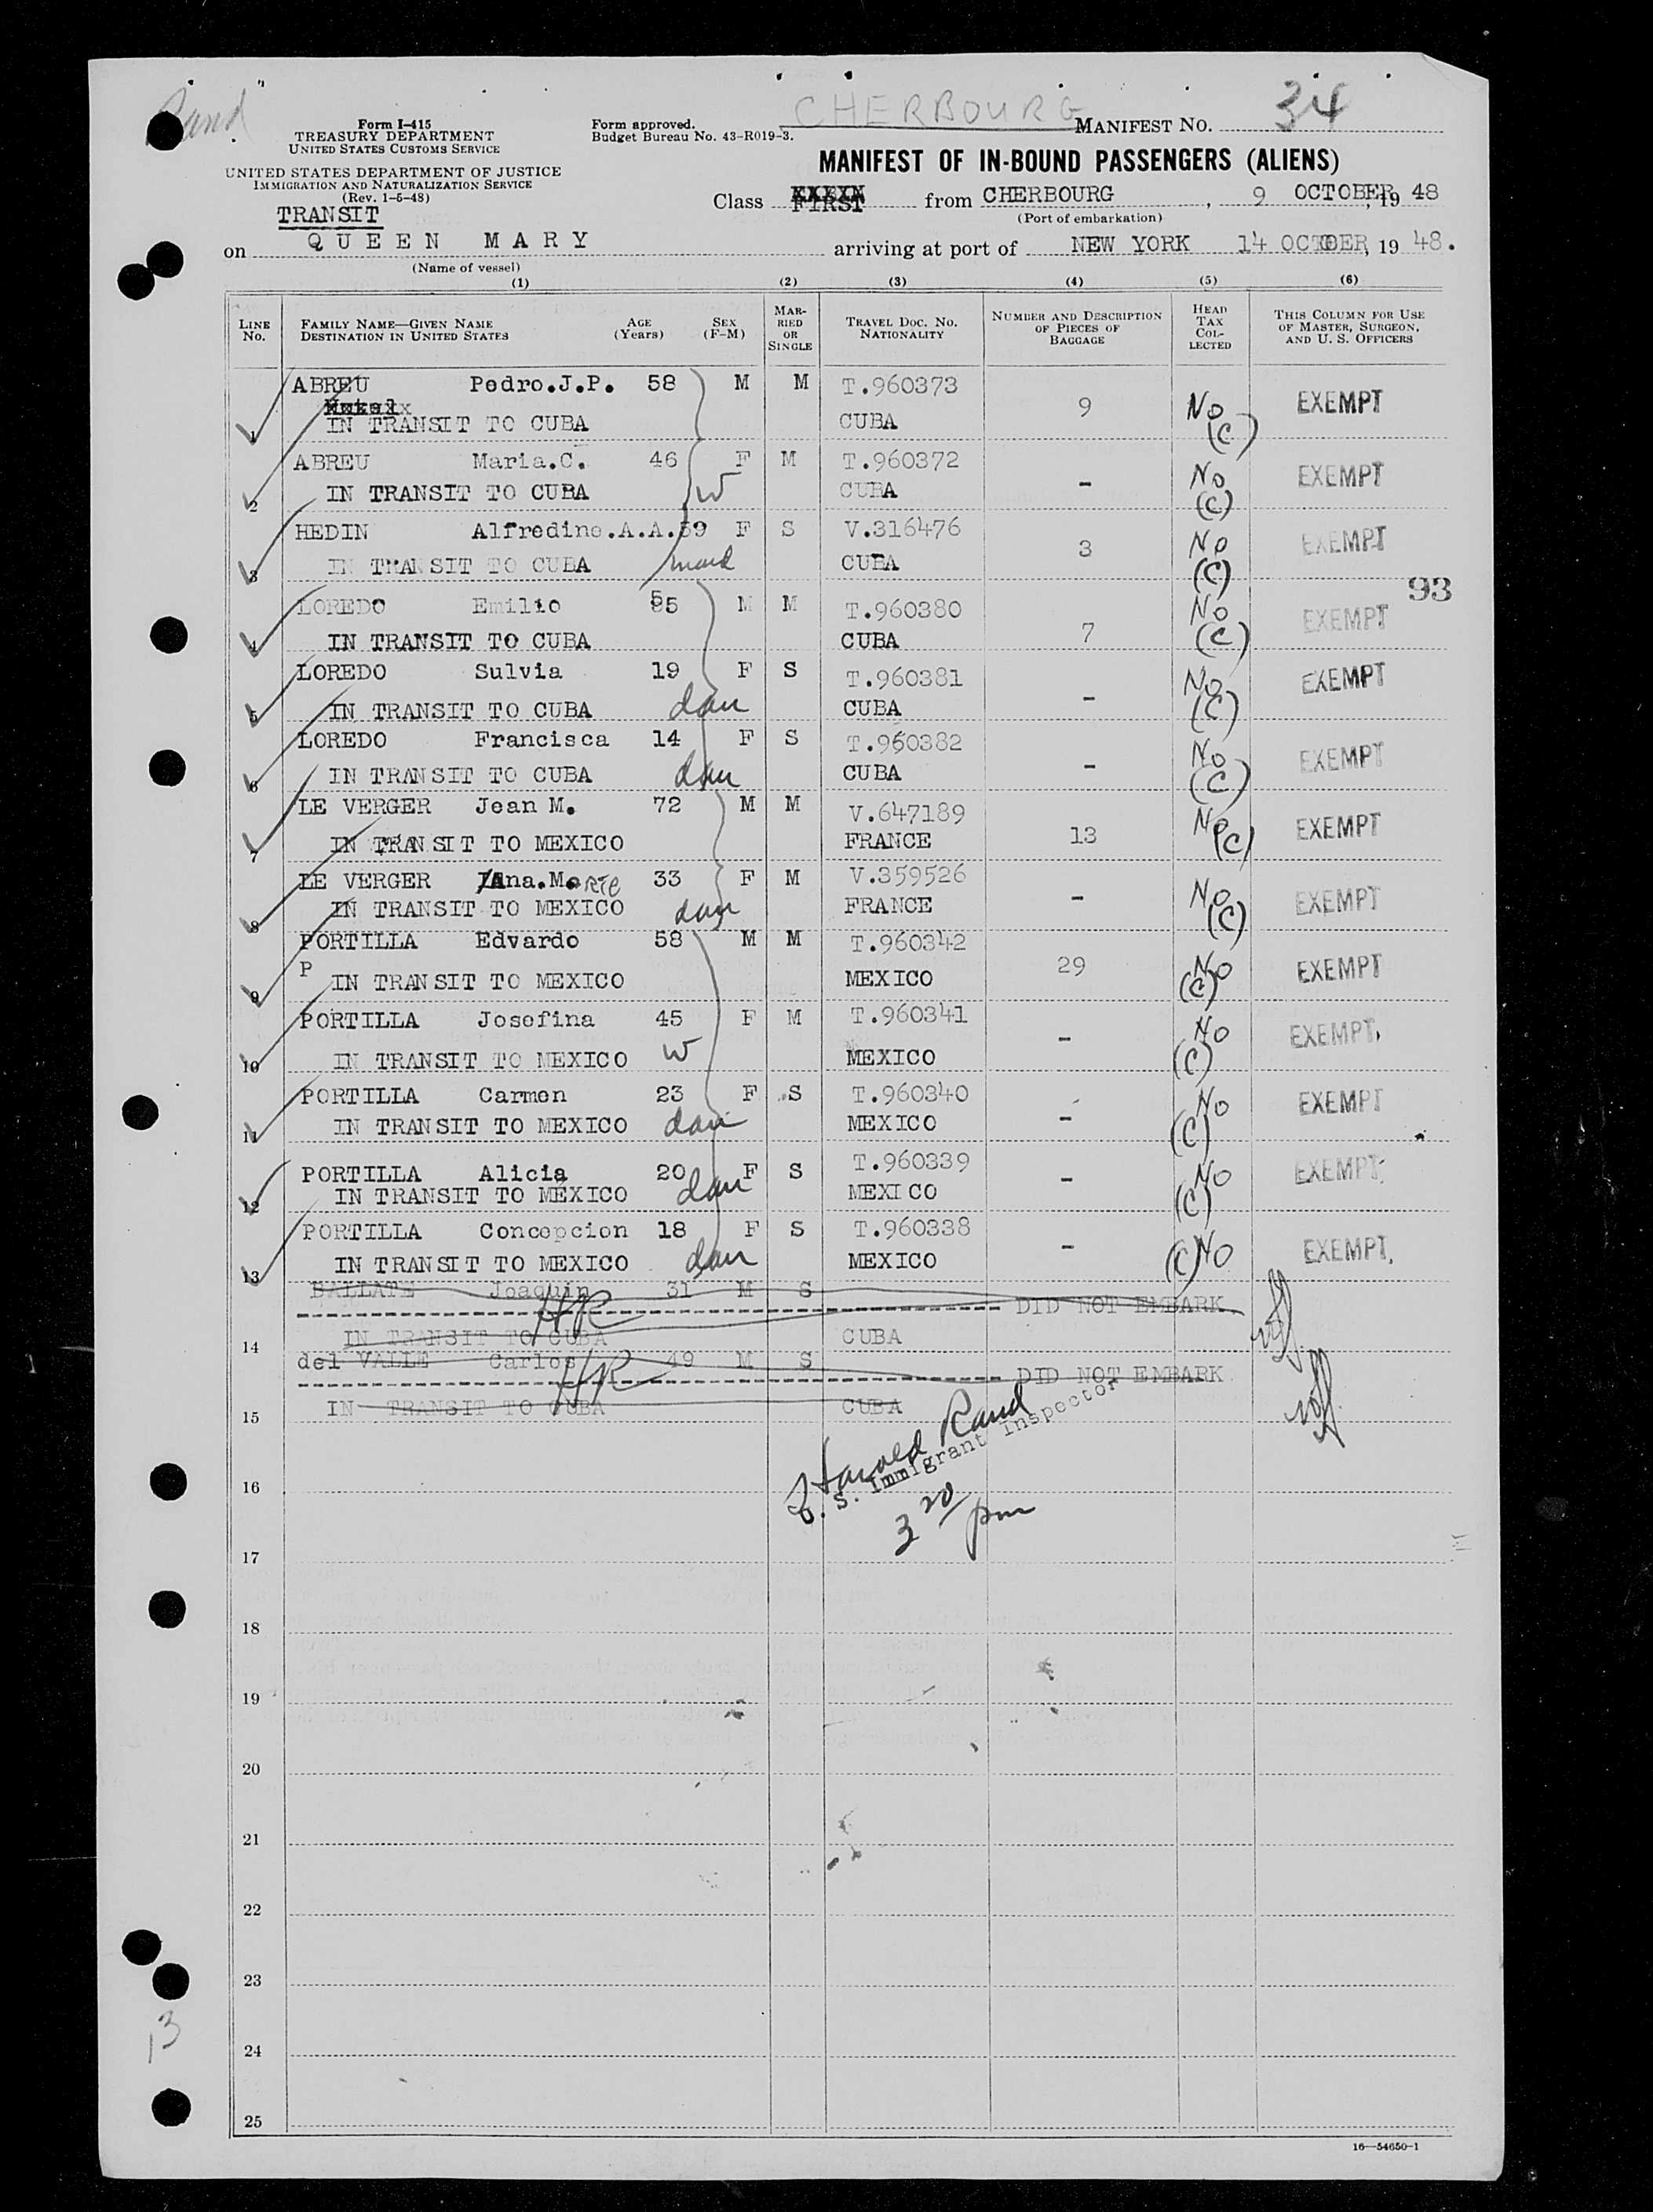 Rand
CHERBOURG
Form I-415
TREASURY DEPARTMENT
UNITED STATES CUSTOMS SERVICE
Form approved.
Budget Bureau No. 43-R019-3.
MANIFEST NO. 34
UNITED STATES DEPARTMENT OF JUSTICE
IMMIGRATION AND NATURALIZATION SERVICE
(Rev. 1-5-48)
MANIFEST OF IN-BOUND PASSENGERS (ALIENS)
TRANSIT
Class FIRST from CHERBOURG, 9 OCTOBER, 19 48
(Port of embarkation)
on QUEEN MARY arriving at port of NEW YORK 14 OCTOBER, 19 48.
(Name of vessel)
(1) (2) (3) (4) (5) (6)
LINE No. FAMILY NAME—GIVEN NAME DESTINATION IN UNITED STATES AGE (Years) SEX (F-M) MARRIED OR SINGLE TRAVEL DOC. NO. NATIONALITY NUMBER AND DESCRIPTION OF PIECES OF BAGGAGE HEAD TAX COLLECTED THIS COLUMN FOR USE OF MASTER, SURGEON, AND U. S. OFFICERS
ABREU Pedro.J.P. 58 M M T.960373 9 No (C) EXEMPT
1 IN TRANSIT TO CUBA CUBA
ABREU Maria.C. 46 F M T.960372 - No (C) EXEMPT
2 IN TRANSIT TO CUBA W CUBA
HEDIN Alfredine.A.A.59 F S V.316476 3 No (C) EXEMPT
3 IN TRANSIT TO CUBA maid CUBA
93
LOREDO Emilio 55 M M T.960380 7 No (C) EXEMPT
4 IN TRANSIT TO CUBA CUBA
LOREDO Sulvia 19 F S T.960381 - No (C) EXEMPT
5 IN TRANSIT TO CUBA dau CUBA
LOREDO Francisca 14 F S T.960382 - No (C) EXEMPT
6 IN TRANSIT TO CUBA dau CUBA
LE VERGER Jean M. 72 M M V.647189 13 No (C) EXEMPT
7 IN TRANSIT TO MEXICO FRANCE
LE VERGER Ana.Marie 33 F M V.359526 - No (C) EXEMPT
8 IN TRANSIT TO MEXICO dau FRANCE
PORTILLA Edvardo 58 M M T.960342 29 No (C) EXEMPT
9 P IN TRANSIT TO MEXICO MEXICO
PORTILLA Josefina 45 F M T.960341 - No (C) EXEMPT
10 IN TRANSIT TO MEXICO W MEXICO
PORTILLA Carmen 23 F S T.960340 - No (C) EXEMPT
11 IN TRANSIT TO MEXICO dau MEXICO
PORTILLA Alicia 20 F S T.960339 - No (C) EXEMPT
12 IN TRANSIT TO MEXICO dau MEXICO
PORTILLA Concepcion 18 F S T.960338 - (C) No EXEMPT
13 IN TRANSIT TO MEXICO dau MEXICO
BALLATE Joaquin 31 M S
HR DID NOT EMBARK
14 IN TRANSIT TO CUBA CUBA
del VALLE Carlos 49 M S
HR DID NOT EMBARK
15 IN TRANSIT TO CUBA CUBA
Harold Rand
U. S. Immigrant Inspector
3 20 pm
16
17
18
19
20
21
22
23
13
24
25
16—54650-1